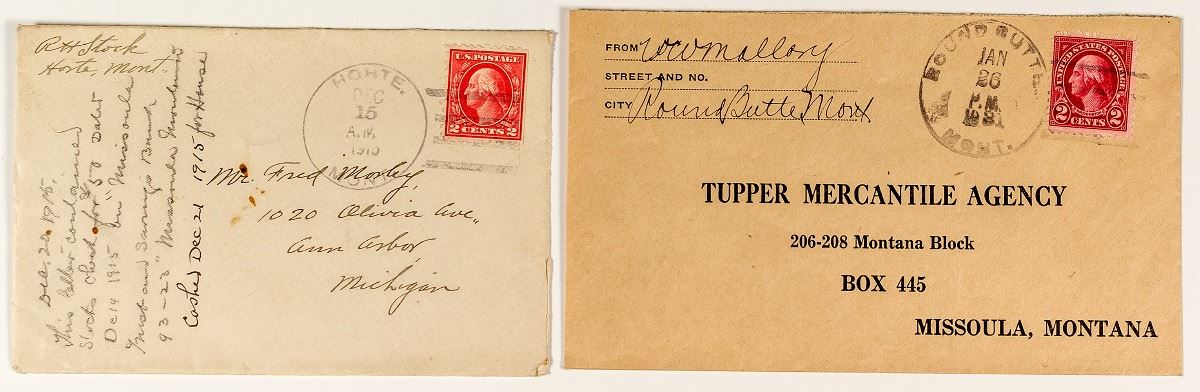 R H Stock
Horte, Mont.
HORTE.
DEC
15
A.M.
1915
MONT.
U.S. POSTAGE
2 CENTS 2
Mr. Fred Morley,
1020 Olivia Ave.,
Ann Arbor,
Michigan
Dec. 22, 1915
This letter contained
Stocks check for $50 Dated
Dec 14 1915 on "Missoula
Trust and Savings Bank
93-23" Missoula Montana
Cashed Dec 21 1915 for House
FROM W W Mallory
STREET AND NO.
CITY Round Butte Mont
ROUND BUTTE
JAN
26
P.M.
1931
MONT.
UNITED STATES POSTAGE
2 CENTS 2
TUPPER MERCANTILE AGENCY
206-208 Montana Block
BOX 445
MISSOULA, MONTANA